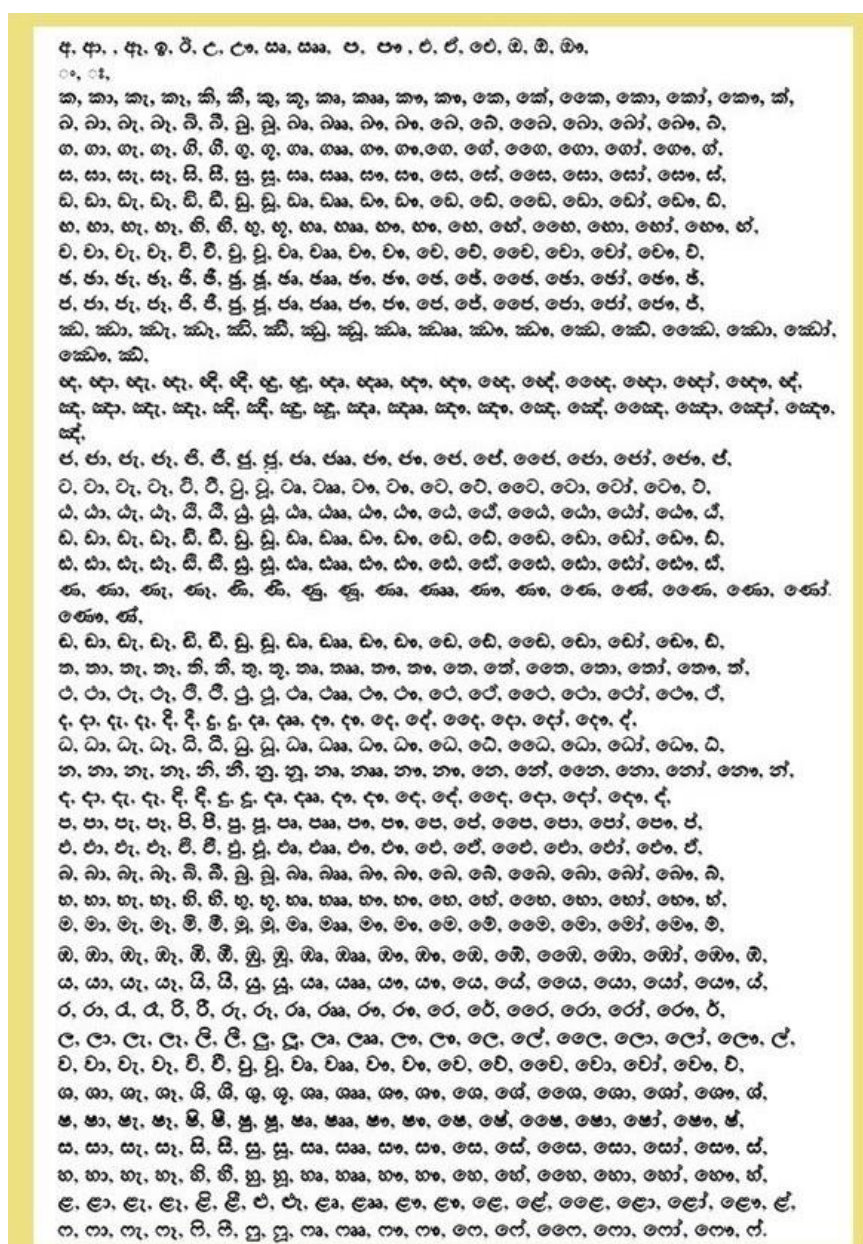 අ, ආ, , ඈ, ඉ, ඊ, උ, ඌ, ඍ, ඎ, ඏ, ඐ, එ, ඒ, ඓ, ඔ, ඕ, ඖ,
ං, ඃ,
ක, කා, කැ, කෑ, කි, කී, කු, කූ, කෘ, කෲ, කෟ, කෳ, කෙ, කේ, කෛ, කො, කෝ, කෞ, ක්,
ඛ, ඛා, ඛැ, ඛෑ, ඛි, ඛී, ඛු, ඛූ, ඛෘ, ඛෲ, ඛෟ, ඛෳ, ඛෙ, ඛේ, ඛෛ, ඛො, ඛෝ, ඛෞ, ඛ්,
ග, ගා, ගැ, ගෑ, ගි, ගී, ගු, ගූ, ගෘ, ගෲ, ගෟ, ගෳ,ගෙ, ගේ, ගෛ, ගො, ගෝ, ගෞ, ග්,
ඝ, ඝා, ඝැ, ඝෑ, ඝි, ඝී, ඝු, ඝූ, ඝෘ, ඝෲ, ඝෟ, ඝෳ, ඝෙ, ඝේ, ඝෛ, ඝො, ඝෝ, ඝෞ, ඝ්,
ඞ, ඞා, ඞැ, ඞෑ, ඞි, ඞී, ඞු, ඞූ, ඞෘ, ඞෲ, ඞෟ, ඞෳ, ඞෙ, ඞේ, ඞෛ, ඞො, ඞෝ, ඞෞ, ඞ්,
ඟ, ඟා, ඟැ, ඟෑ, ඟි, ඟී, ඟු, ඟූ, ඟෘ, ඟෲ, ඟෟ, ඟෳ, ඟෙ, ඟේ, ඟෛ, ඟො, ඟෝ, ඟෞ, ඟ්,
ච, චා, චැ, චෑ, චි, චී, චු, චූ, චෘ, චෲ, චෟ, චෳ, චෙ, චේ, චෛ, චො, චෝ, චෞ, ච්,
ඡ, ඡා, ඡැ, ඡෑ, ඡි, ඡී, ඡු, ඡූ, ඡෘ, ඡෲ, ඡෟ, ඡෳ, ඡෙ, ඡේ, ඡෛ, ඡො, ඡෝ, ඡෞ, ඡ්,
ජ, ජා, ජැ, ජෑ, ජි, ජී, ජු, ජූ, ජෘ, ජෲ, ජෟ, ජෳ, ජෙ, ජේ, ජෛ, ජො, ජෝ, ජෞ, ජ්,
ඣ, ඣා, ඣැ, ඣෑ, ඣි, ඣී, ඣු, ඣූ, ඣෘ, ඣෲ, ඣෟ, ඣෳ, ඣෙ, ඣේ, ඣෛ, ඣො, ඣෝ,
ඣෞ, ඣ්,
ඤ, ඤා, ඤැ, ඤෑ, ඤි, ඤී, ඤු, ඤූ, ඤෘ, ඤෲ, ඤෟ, ඤෳ, ඤෙ, ඤේ, ඤෛ, ඤො, ඤෝ, ඤෞ, ඤ්,
ඥ, ඥා, ඥැ, ඥෑ, ඥි, ඥී, ඥු, ඥූ, ඥෘ, ඥෲ, ඥෟ, ඥෳ, ඥෙ, ඥේ, ඥෛ, ඥො, ඥෝ, ඥෞ,
ඥ්,
ඦ, ඦා, ඦැ, ඦෑ, ඦි, ඦී, ඦු, ඦූ, ඦෘ, ඦෲ, ඦෟ, ඦෳ, ඦෙ, ඦේ, ඦෛ, ඦො, ඦෝ, ඦෞ, ඦ්,
ට, ටා, ටැ, ටෑ, ටි, ටී, ටු, ටූ, ටෘ, ටෲ, ටෟ, ටෳ, ටෙ, ටේ, ටෛ, ටො, ටෝ, ටෞ, ට්,
ඨ, ඨා, ඨැ, ඨෑ, ඨි, ඨී, ඨු, ඨූ, ඨෘ, ඨෲ, ඨෟ, ඨෳ, ඨෙ, ඨේ, ඨෛ, ඨො, ඨෝ, ඨෞ, ඨ්,
ඩ, ඩා, ඩැ, ඩෑ, ඩි, ඩී, ඩු, ඩූ, ඩෘ, ඩෲ, ඩෟ, ඩෳ, ඩෙ, ඩේ, ඩෛ, ඩො, ඩෝ, ඩෞ, ඩ්,
ඪ, ඪා, ඪැ, ඪෑ, ඪි, ඪී, ඪු, ඪූ, ඪෘ, ඪෲ, ඪෟ, ඪෳ, ඪෙ, ඪේ, ඪෛ, ඪො, ඪෝ, ඪෞ, ඪ්,
ණ, ණා, ණැ, ණෑ, ණි, ණී, ණු, ණූ, ණෘ, ණෲ, ණෟ, ණෳ, ණෙ, ණේ, ණෛ, ණො, ණෝ.
ණෞ, ණ්,
ඬ, ඬා, ඬැ, ඬෑ, ඬි, ඬී, ඬු, ඬූ, ඬෘ, ඬෲ, ඬෟ, ඬෳ, ඬෙ, ඬේ, ඬෛ, ඬො, ඬෝ, ඬෞ, ඬ්,
ත, තා, තැ, තෑ, ති, තී, තු, තූ, තෘ, තෲ, තෟ, තෳ, තෙ, තේ, තෛ, තො, තෝ, තෞ, ත්,
ථ, ථා, ථැ, ථෑ, ථි, ථී, ථු, ථූ, ථෘ, ථෲ, ථෟ, ථෳ, ථෙ, ථේ, ථෛ, ථො, ථෝ, ථෞ, ථ්,
ද, දා, දැ, දෑ, දි, දී, දු, දූ, දෘ, දෲ, දෟ, දෳ, දෙ, දේ, දෛ, දො, දෝ, දෞ, ද්,
ධ, ධා, ධැ, ධෑ, ධි, ධී, ධු, ධූ, ධෘ, ධෲ, ධෟ, ධෳ, ධෙ, ධේ, ධෛ, ධො, ධෝ, ධෞ, ධ්,
න, නා, නැ, නෑ, නි, නී, නු, නූ, නෘ, නෲ, නෟ, නෳ, නෙ, නේ, නෛ, නො, නෝ, නෞ, න්,
ඳ, ඳා, ඳැ, ඳෑ, ඳි, ඳී, ඳු, ඳූ, ඳෘ, ඳෲ, ඳෟ, ඳෳ, ඳෙ, ඳේ, ඳෛ, ඳො, ඳෝ, ඳෞ, ඳ්,
ප, පා, පැ, පෑ, පි, පී, පු, පූ, පෘ, පෲ, පෟ, පෳ, පෙ, පේ, පෛ, පො, පෝ, පෞ, ප්,
ඵ, ඵා, ඵැ, ඵෑ, ඵි, ඵී, ඵු, ඵූ, ඵෘ, ඵෲ, ඵෟ, ඵෳ, ඵෙ, ඵේ, ඵෛ, ඵො, ඵෝ, ඵෞ, ඵ්,
බ, බා, බැ, බෑ, බි, බී, බු, බූ, බෘ, බෲ, බෟ, බෳ, බෙ, බේ, බෛ, බො, බෝ, බෞ, බ්,
භ, භා, භැ, භෑ, භි, භී, භු, භූ, භෘ, භෲ, භෟ, භෳ, භෙ, භේ, භෛ, භො, භෝ, භෞ, භ්,
ම, මා, මැ, මෑ, මි, මී, මු, මූ, මෘ, මෲ, මෟ, මෳ, මෙ, මේ, මෛ, මො, මෝ, මෞ, ම්,
ඹ, ඹා, ඹැ, ඹෑ, ඹි, ඹී, ඹු, ඹූ, ඹෘ, ඹෲ, ඹෟ, ඹෳ, ඹෙ, ඹේ, ඹෛ, ඹො, ඹෝ, ඹෞ, ඹ්,
ය, යා, යැ, යෑ, යි, යී, යු, යූ, යෘ, යෲ, යෟ, යෳ, යෙ, යේ, යෛ, යො, යෝ, යෞ, ය්,
ර, රා, රැ, රෑ, රි, රී, රු, රූ, රෘ, රෲ, රෟ, රෳ, රෙ, රේ, රෛ, රො, රෝ, රෞ, ර්,
ල, ලා, ලැ, ලෑ, ලි, ලී, ලු, ලූ, ලෘ, ලෲ, ලෟ, ලෳ, ලෙ, ලේ, ලෛ, ලො, ලෝ, ලෞ, ල්,
ව, වා, වැ, වෑ, වි, වී, වු, වූ, වෘ, වෲ, වෟ, වෳ, වෙ, වේ, වෛ, වො, වෝ, වෞ, ව්,
ශ, ශා, ශැ, ශෑ, ශි, ශී, ශු, ශූ, ශෘ, ශෲ, ශෟ, ශෳ, ශෙ, ශේ, ශෛ, ශො, ශෝ, ශෞ, ශ්,
ෂ, ෂා, ෂැ, ෂෑ, ෂි, ෂී, ෂු, ෂූ, ෂෘ, ෂෲ, ෂෟ, ෂෳ, ෂෙ, ෂේ, ෂෛ, ෂො, ෂෝ, ෂෞ, ෂ්,
ස, සා, සැ, සෑ, සි, සී, සු, සූ, සෘ, සෲ, සෟ, සෳ, සෙ, සේ, සෛ, සො, සෝ, සෞ, ස්,
හ, හා, හැ, හෑ, හි, හී, හු, හූ, හෘ, හෲ, හෟ, හෳ, හෙ, හේ, හෛ, හො, හෝ, හෞ, හ්,
ළ, ළා, ළැ, ළෑ, ළි, ළී, ළු, ළූ, ළෘ, ළෲ, ළෟ, ළෳ, ළෙ, ළේ, ළෛ, ළො, ළෝ, ළෞ, ළ්,
ෆ, ෆා, ෆැ, ෆෑ, ෆි, ෆී, ෆු, ෆූ, ෆෘ, ෆෲ, ෆෟ, ෆෳ, ෆෙ, ෆේ, ෆෛ, ෆො, ෆෝ, ෆෞ, ෆ්.